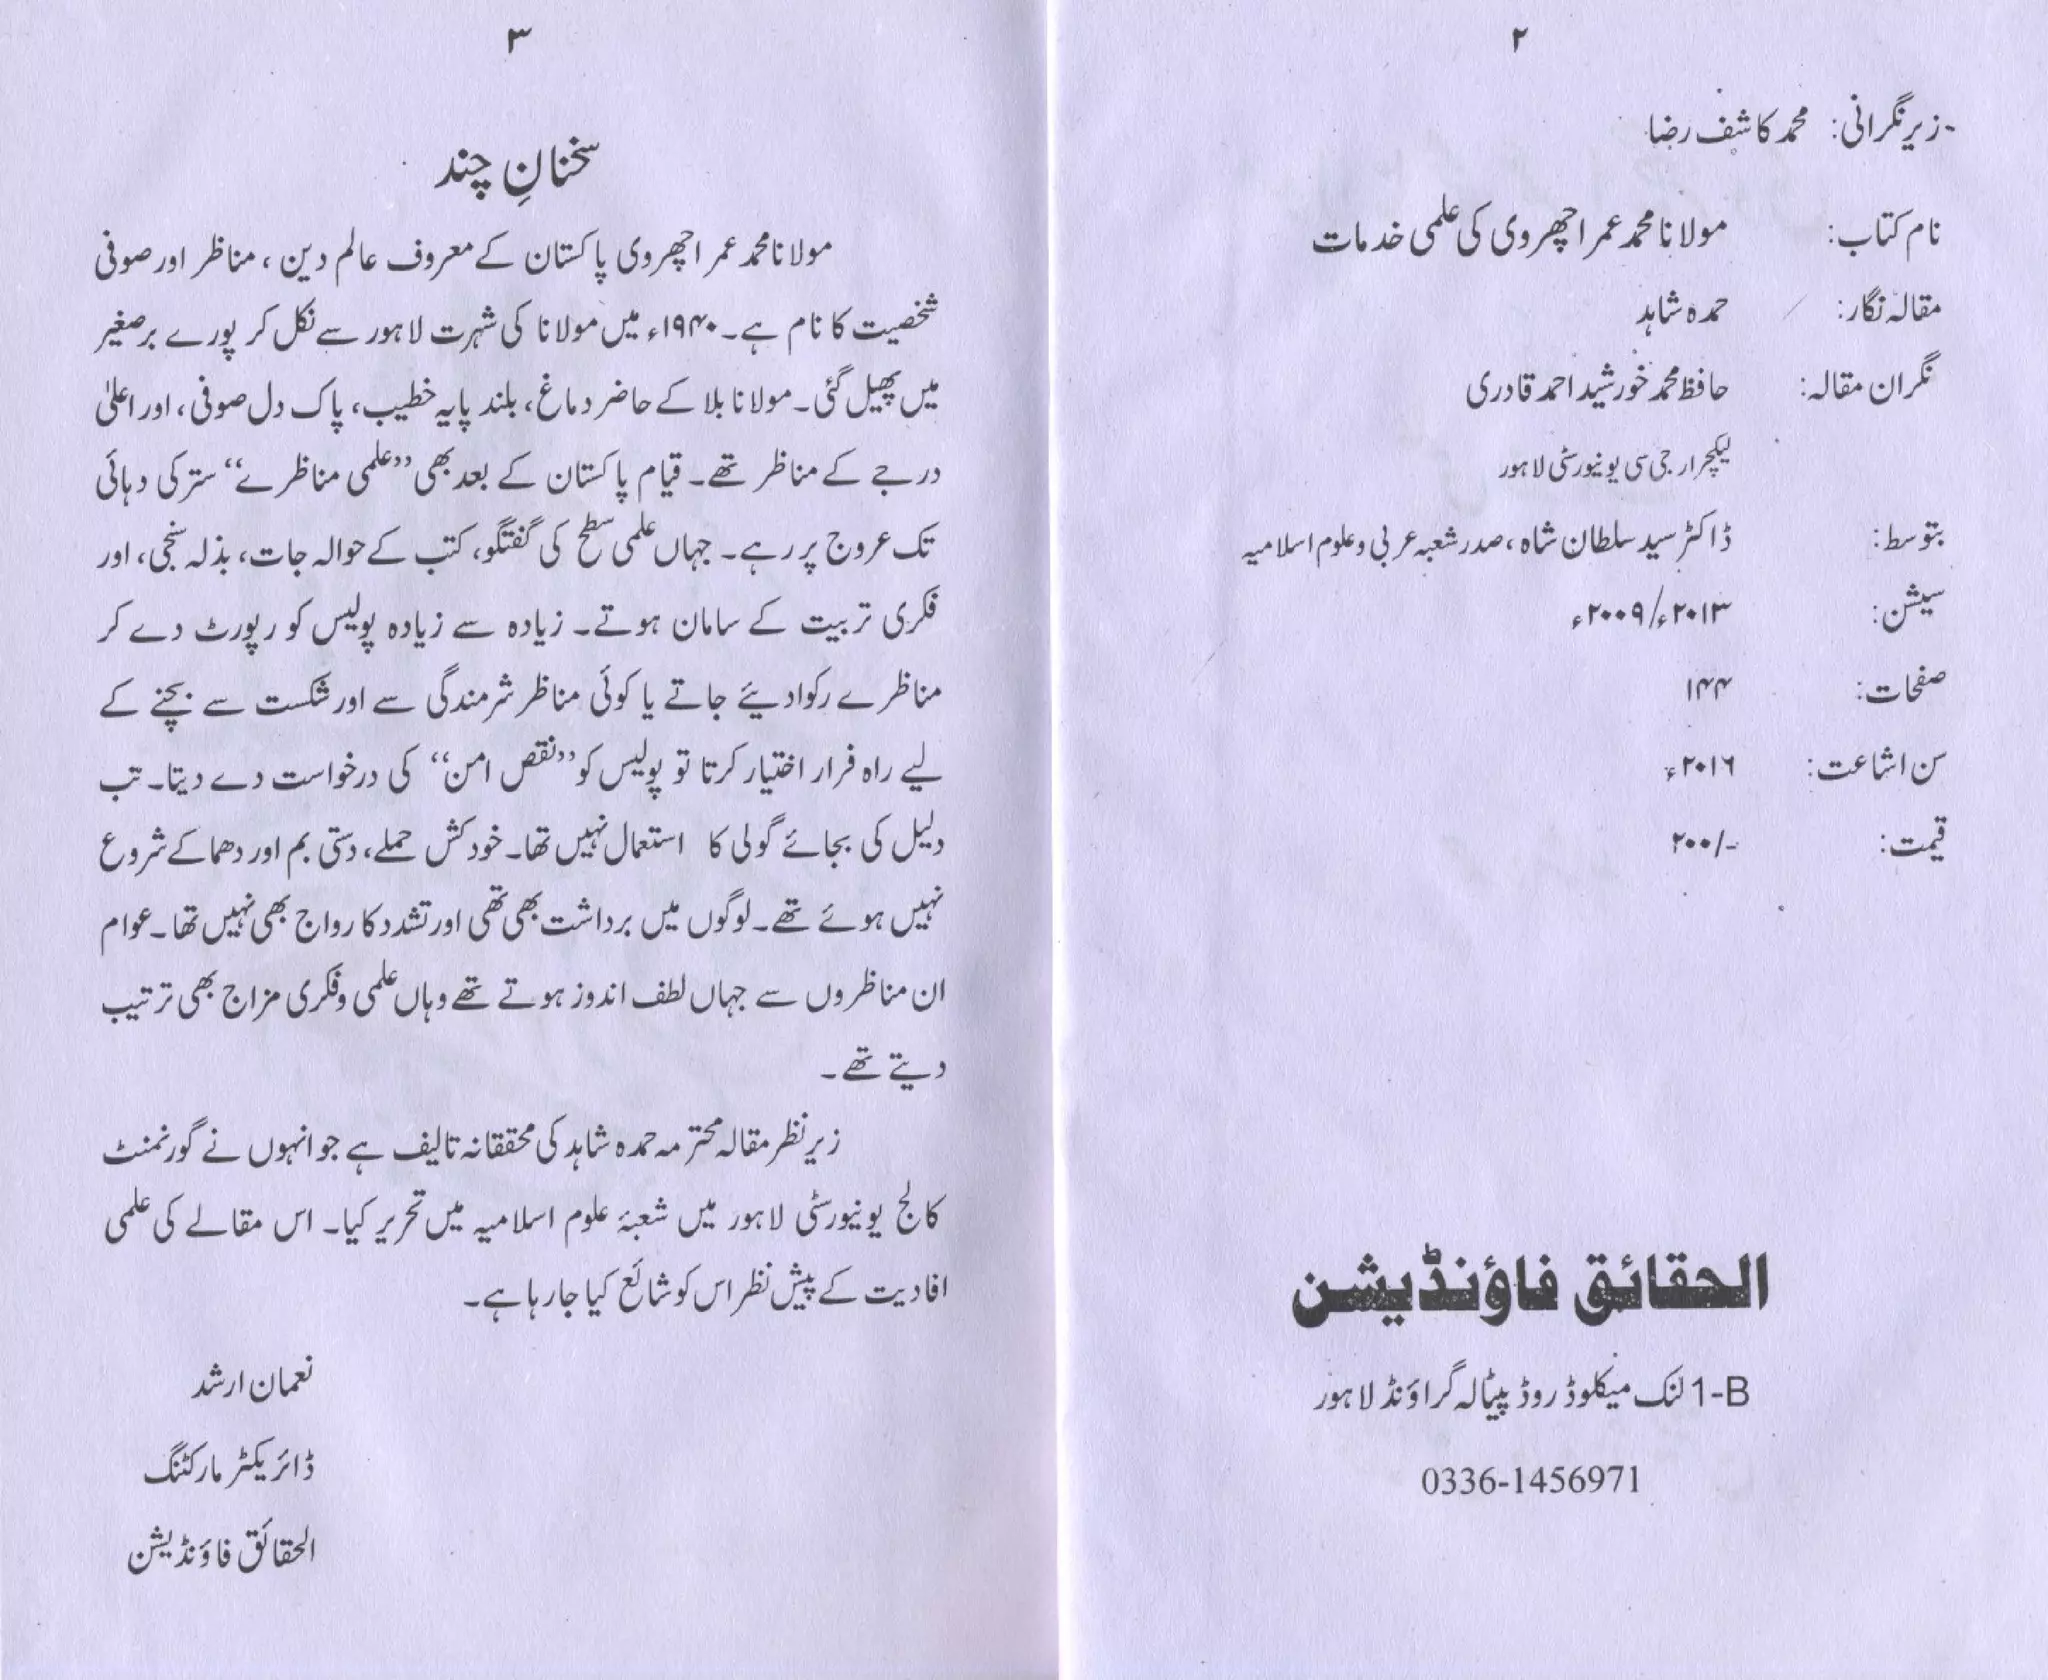 ۲
زیرنگرانی: محمد کاشف رضا
نام کتاب: مولانا محمد عمر اچھروی کی علمی خدمات
مقالہ نگار: حمدہ شاہد
نگران مقالہ: حافظ محمد خورشید احمد قادری
لیکچرار جی سی یونیورسٹی لاہور
بتوسط: ڈاکٹر سید سلطان شاہ، صدر شعبہ عربی و علوم اسلامیہ
سیشن: ۲۰۱۳ء/۲۰۰۹ء
صفحات: ۱۴۴
سن اشاعت: ۲۰۱۶ء
قیمت: ۲۰۰/-
الحقائق فاؤنڈیشن
1-B لنک میکلوڈ روڈ پٹیالہ گراؤنڈ لاہور
0336-1456971
۳
سخنانِ چند
مولانا محمد عمر اچھروی پاکستان کے معروف عالم دین، مناظر اور صوفی
شخصیت کا نام ہے۔ ۱۹۴۰ء میں مولانا کی شہرت لاہور سے نکل کر پورے برصغیر
میں پھیل گئی۔ مولانا بلا کے حاضر دماغ، بلند پایہ خطیب، پاک دل صوفی، اور اعلیٰ
درجے کے مناظر تھے۔ قیام پاکستان کے بعد بھی ’’علمی مناظرے‘‘ ستر کی دہائی
تک عروج پر رہے۔ جہاں علمی سطح کی گفتگو، کتب کے حوالہ جات، بذلہ سنجی، اور
فکری تربیت کے سامان ہوتے۔ زیادہ سے زیادہ پولیس کو رپورٹ دے کر
مناظرے رکوا دیئے جاتے یا کوئی مناظر شرمندگی سے اور شکست سے بچنے کے
لیے راہ فرار اختیار کرتا تو پولیس کو ’’نقص امن‘‘ کی درخواست دے دیتا۔ تب
دلیل کی بجائے گولی کا استعمال نہیں تھا۔ خودکش حملے، دستی بم اور دھماکے شروع
نہیں ہوئے تھے۔ لوگوں میں برداشت بھی تھی اور تشدد کا رواج بھی نہیں تھا۔ عوام
ان مناظروں سے جہاں لطف اندوز ہوتے تھے وہاں علمی و فکری مزاج بھی ترتیب
دیتے تھے۔
زیر نظر مقالہ محترمہ حمدہ شاہد کی محققانہ تالیف ہے جو انہوں نے گورنمنٹ
کالج یونیورسٹی لاہور میں شعبۂ علوم اسلامیہ میں تحریر کیا۔ اس مقالے کی علمی
افادیت کے پیش نظر اس کو شائع کیا جا رہا ہے۔
نعمان ارشد
ڈائریکٹر مارکٹنگ
الحقائق فاؤنڈیشن